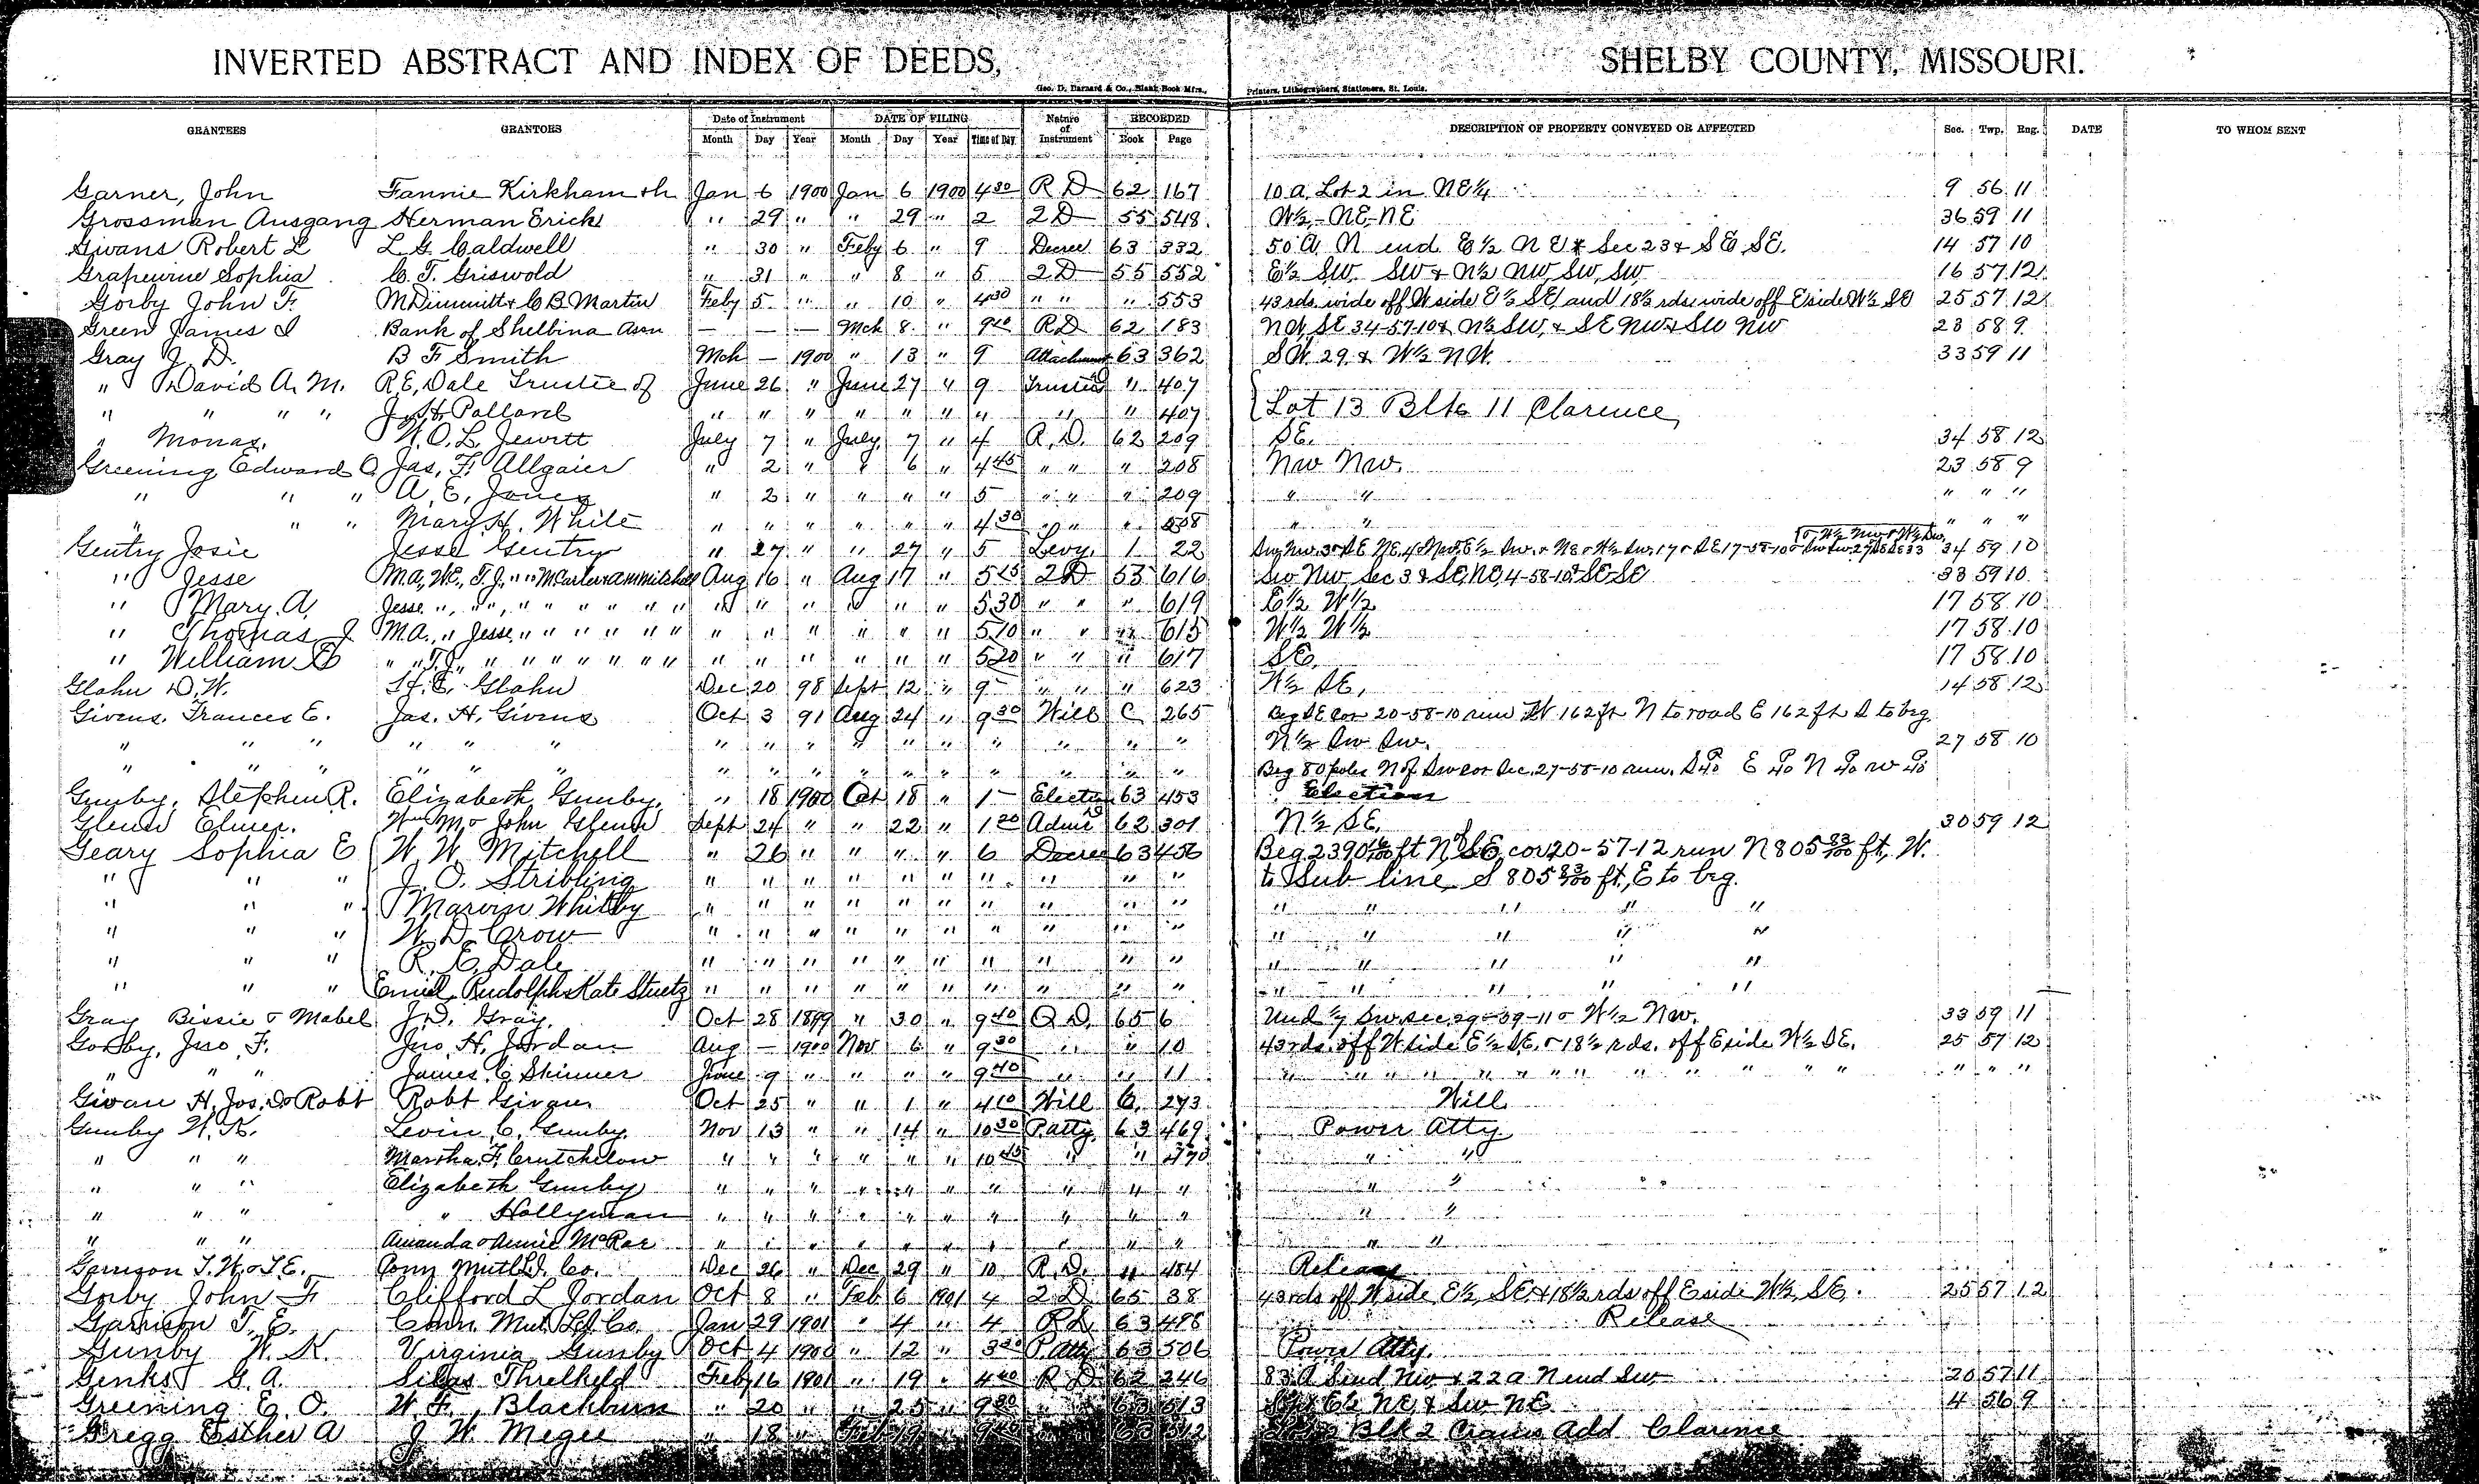 INVERTED ABSTRACT AND INDEX OF DEEDS, SHELBY COUNTY, MISSOURI.
Geo. D. Barnard & Co., Blank Book Mfrs., Printers, Lithographers, Stationers, St. Louis.
GRANTEES GRANTORS Date of Instrument DATE OF FILING Nature of Instrument RECORDED DESCRIPTION OF PROPERTY CONVEYED OR AFFECTED Sec. Twp. Rng. DATE TO WHOM SENT
Month Day Year Month Day Year Time of Day Book Page
Garner, John Fannie Kirkham & h Jan 6 1900 Jan 6 1900 4 30 R D 62 167 10 a, Lot 2 in NE 1/4 9 56 11
Grossman Ausgang Herman Erichs " 29 " " 29 " 2 2 D 55 548 W½ - NE, NE 36 59 11
Givans Robert L L G Caldwell " 30 " Feby 6 " 9 Decree 63 332 50 a N end E½ NE & Sec 23 & SE SE. 14 57 10
Grapewine Sophia C. T. Griswold " 31 " " 8 " 5 2 D 55 552 E½ SW SW & N½ NW, SW, SW 16 57 12
Gorby John F. M Dimmitt & C B Martin Feby 5 " " 10 " 4 30 " " " 553 43 rds. wide off W side E½ SE, and 18½ rds. wide off E side W½ SE 25 57 12
Green James I Bank of Shelbina Assn — — — Mch 8 " 9 R D 62 183 NW SE 34-57-10 & N½ SW, & SE NW & SW NW 23 58 9
Gray J. D. B F Smith Mch — 1900 " 13 " 9 Attachment 63 362 SW 29 & W½ NW. 33 59 11
" David A. M. R.E. Dale Trustee of June 26 " June 27 " 9 Trustee D " 407
" " " " J. H. Pollard " " " " " " " " " 407 Lot 13 Blk 11 Clarence
" Monas. W. O. L. Jewett July 7 " July 7 " 4 R. D. 62 209 SE. 34 58 12
Greening Edward O. Jas. F. Allgaier " 2 " " 6 " 4 45 " " " 208 NW NW. 23 58 9
" " " A. E. Jones " 2 " " " " 5 " " " 209 " " " " "
" " " Mary H. White " " " " " " 4 30 " " " 208 " " " " "
Gentry Josie Jesse Gentry " 27 " " 27 " 5 Levy 1 22 34 59 10
" Jesse M.A, W.E., T.J., " " M Carter & A M Mitchell Aug 16 " Aug 17 " 5 15 2 D 55 616 SW NW, Sec 3 & SE, NE, 4-58-10 & SE SE 33 59 10
" Mary. A. Jesse " " " " " " " " " " " " " " 5 30 " " " 619 E½ W½ 17 58 10
" Thomas J. M.A., " Jesse " " " " " " " " " " " " 5 10 " " " 615 W½ W½ 17 58 10
" William E " " T.J. " " " " " " " " " " " " " 5 20 " " " 617 SE. 17 58 10
Glahn D. W. H. E. Glahn Dec 20 98 Sept 12 " 9 " " " 623 W½ SE, 14 58 12
Givens, Frances E. Jas. H. Givens Oct 3 91 Aug 24 " 9 30 Will C 265 Beg SE cor 20-58-10 run W 162 ft N to road E 162 ft S to beg.
" " " " " " " " " " " " " " " " N½ SW SW. 27 58 10
" " " " " " " " " " " " " " " " Beg 80 poles N of SW cor Sec. 27-58-10 run. S 40 P. E 40 P. N 40 P. W 40 P.
Gunby, Stephen R. Elizabeth Gunby. " 18 1900 Oct 18 " 1 Election 63 453 Election
Glenn Elmer. Wm M & John Glenn Sept 24 " " 22 " 1 20 Admr D 62 301 N½ SE. 30 59 12
Geary Sophia E W. W. Mitchell " 26 " " " " 6 Decree 63 456 Beg 2390 16/100 ft N of SE cor 20-57-12 run N 805 83/100 ft, W.
" " " J. O. Stribling " " " " " " " " " " to Sub line, S 805 83/100 ft, E to beg.
" " " Marvin Whitby " " " " " " " " " " " " " " "
" " " W. D. Crow " " " " " " " " " " " " " " "
" " " R. E. Dale " " " " " " " " " " " " " " "
" " " Emiel, Rudolph & Kate Stuetz " " " " " " " " " " " " " " "
Gray Bissie & Mabel J. D. Gray. Oct 28 1899 " 30 " 9 40 Q. D. 65 6 Und 1/7 SW. sec. 29-59-11 & W½ NW. 33 59 11
Gorby, Jno. F. Jno. H. Jordan Aug — 1900 Nov 6 " 9 30 " " 10 43 rds. off W side E½ SE. & 18½ rds. off E side W½ SE. 25 57 12
" " " James. C. Skinner June 9 " " " " 9 40 " " 11 " " " " " " " " " " " " " " "
Givan H. Jos. D & Robt Robt Givan Oct 25 " " 1 " 4 10 Will C. 273 Will
Gunby W. K. Levin C. Gunby. Nov 13 " " 14 " 10 30 P. atty. 63 469 Power Atty
" " " Martha. F. Crutchelow " " " " " " 10 45 " " 470 " "
" " " Elizabeth Gunby " " " " " " " " " " " "
" " " " Hollyman " " " " " " " " " " " "
" " " Amanda & Annie McRae " " " " " " " " " " " "
Garrison T. W. & T. E. Conn Mutl L. I. Co. Dec 26 " Dec 29 " 10 R. D. " 484 Release
Gorby John F Clifford L Jordan Oct 8 " Feb 6 1901 4 2 D 65 38 43 rds off W side, E½, SE, & 18½ rds off E side W½, SE. 25 57 12
Garrison T. E. Conn. Mut. L I Co. Jan 29 1901 " 4 " 4 R D 63 498 Release
Gunby W. K. Virginia Gunby Oct 4 1900 " 12 " 3 P. Atty 63 506 Power Atty.
Genks G. A. Silas Threlkeld Feby 16 1901 " 19 " 4 40 R D 62 246 83 a S end NW & 22 a N end SW 20 57 11
Greening E. O. W. F. Blackburn " 20 " " 25 " 9 30 63 513 E½ NE, & SW NE. 4 56 9
Gregg Esther A J. W. Megee " 18 " Feb 19 " 63 512 Blk 2 Add Clarence